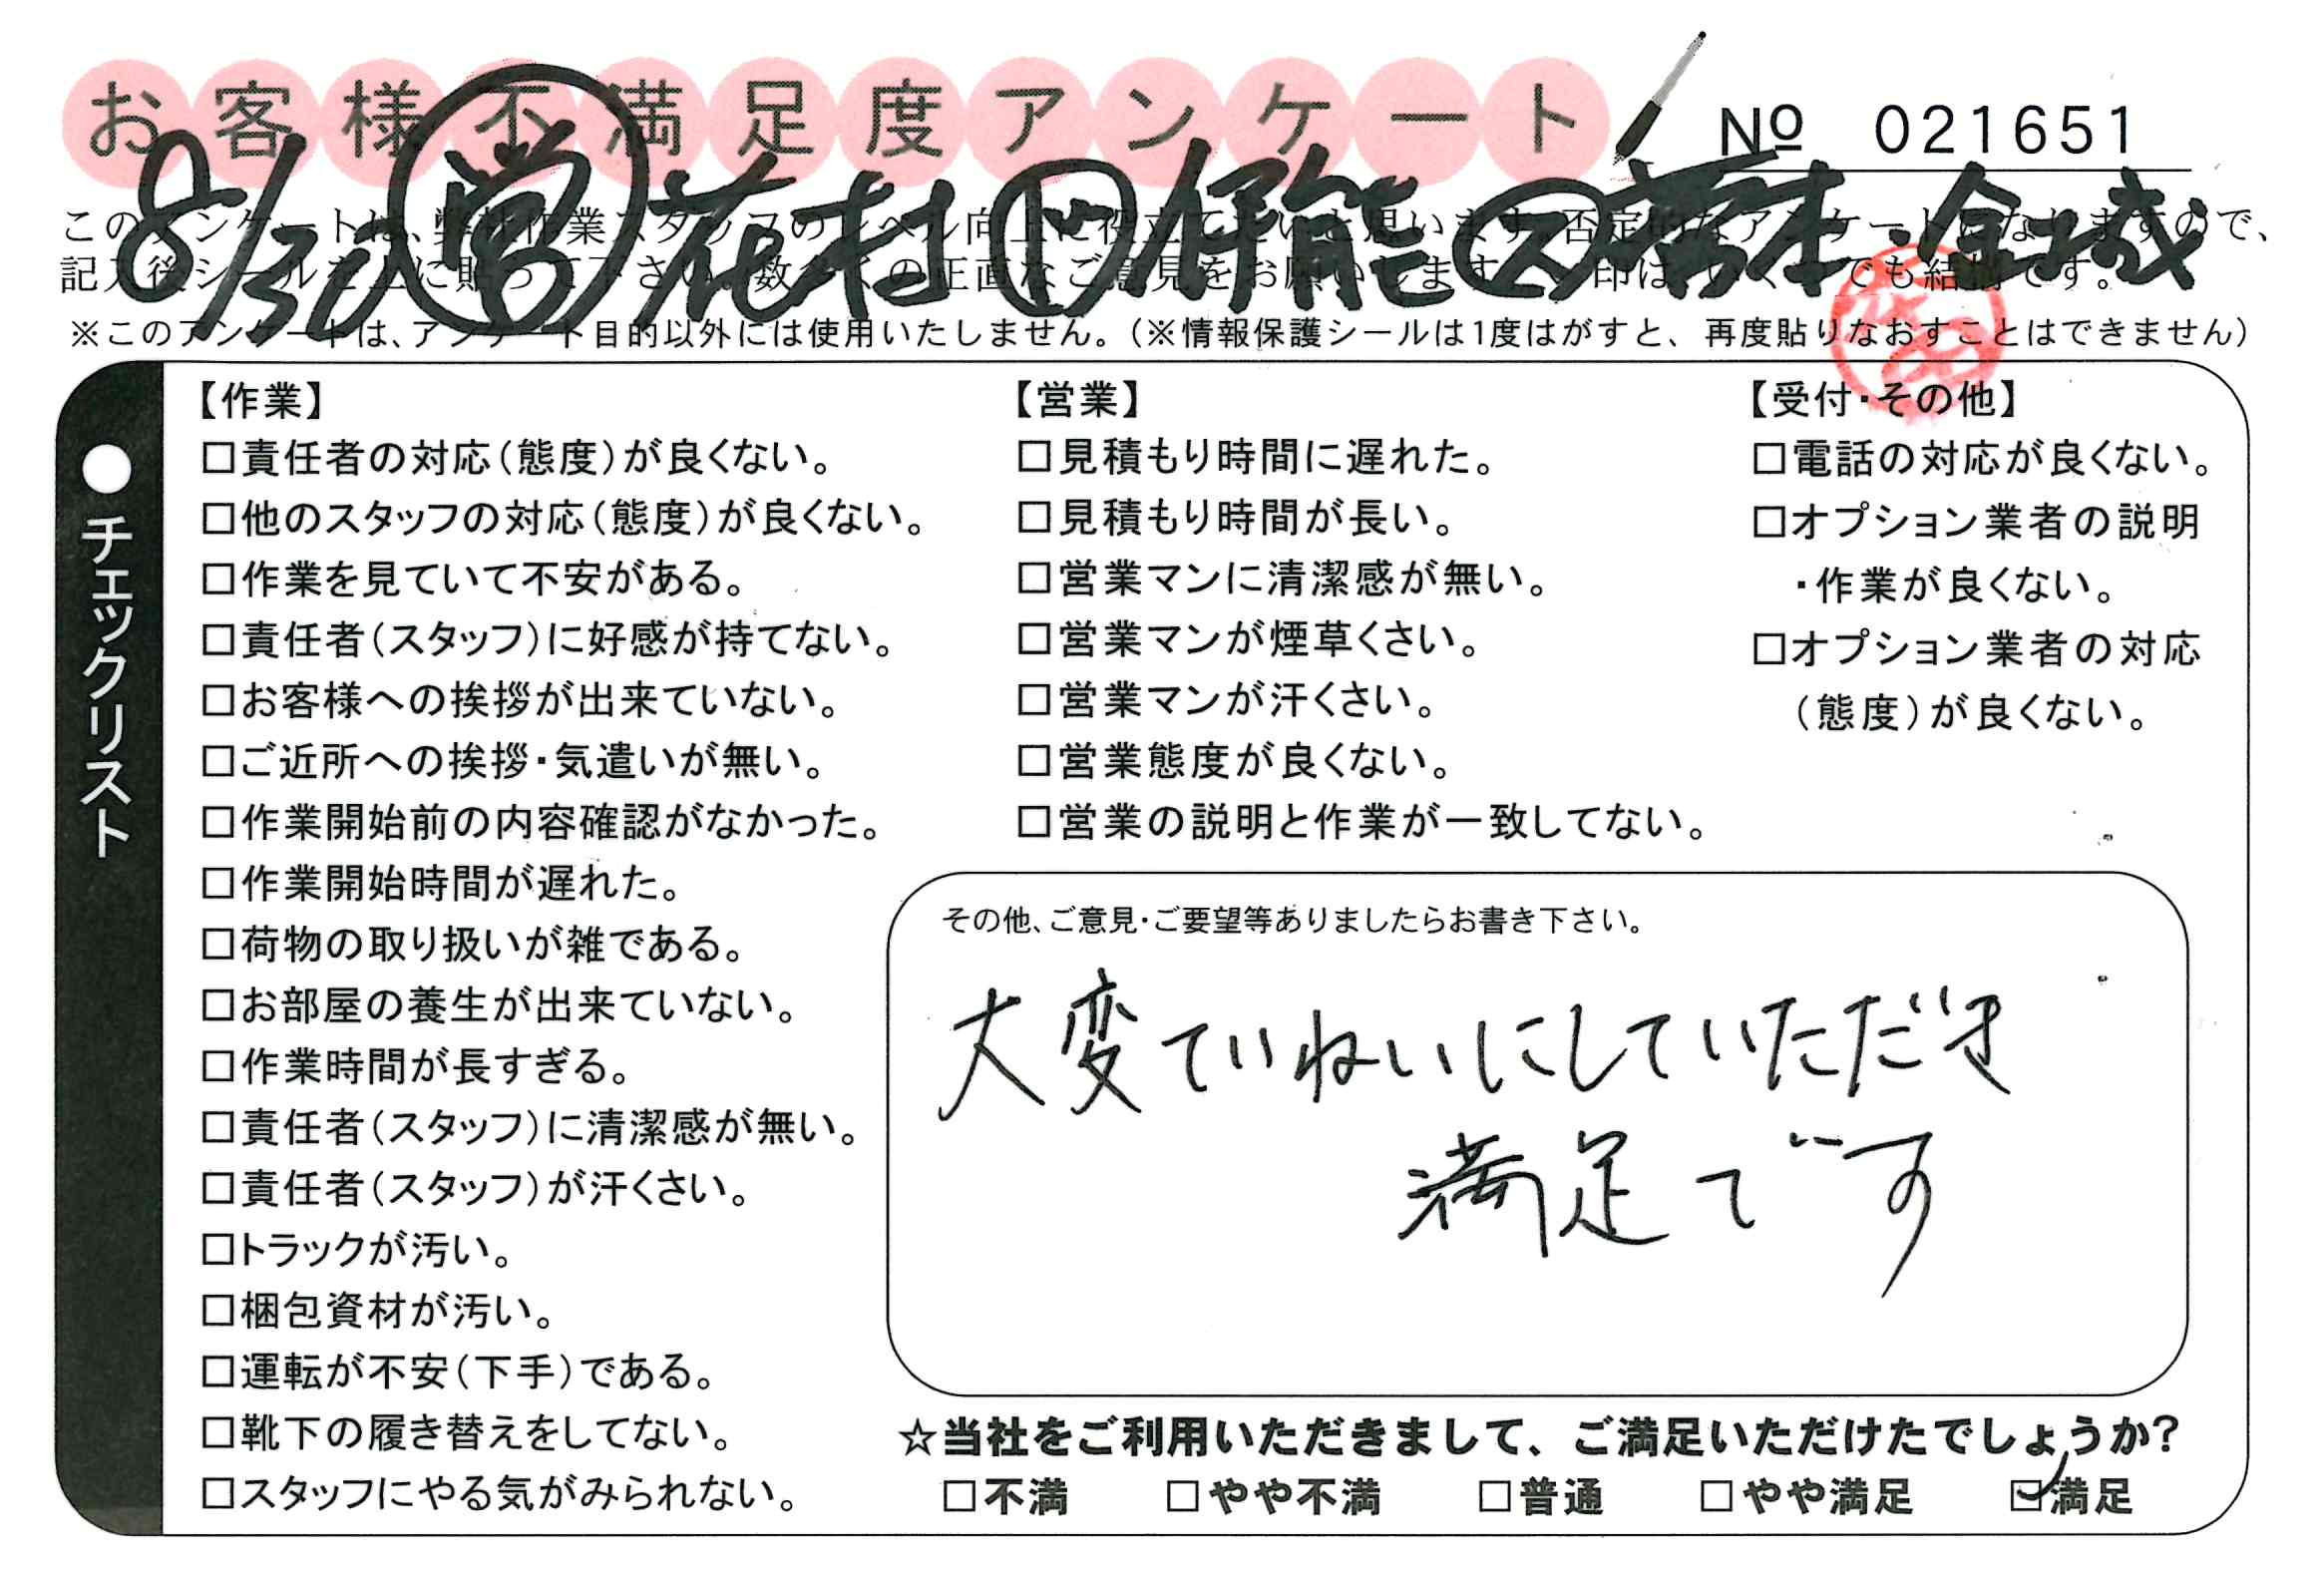 お客様不満足度アンケート
№ 021651
8/30 営 花村 伊能 ス 橋本・金城
※このアンケートは、アンケート目的以外には使用いたしません。(※情報保護シールは1度はがすと、再度貼りなおすことはできません)
●チェックリスト
【作業】
□責任者の対応(態度)が良くない。
□他のスタッフの対応(態度)が良くない。
□作業を見ていて不安がある。
□責任者(スタッフ)に好感が持てない。
□お客様への挨拶が出来ていない。
□ご近所への挨拶・気遣いが無い。
□作業開始前の内容確認がなかった。
□作業開始時間が遅れた。
□荷物の取り扱いが雑である。
□お部屋の養生が出来ていない。
□作業時間が長すぎる。
□責任者(スタッフ)に清潔感が無い。
□責任者(スタッフ)が汗くさい。
□トラックが汚い。
□梱包資材が汚い。
□運転が不安(下手)である。
□靴下の履き替えをしてない。
□スタッフにやる気がみられない。
【営業】
□見積もり時間に遅れた。
□見積もり時間が長い。
□営業マンに清潔感が無い。
□営業マンが煙草くさい。
□営業マンが汗くさい。
□営業態度が良くない。
□営業の説明と作業が一致してない。
【受付・その他】
□電話の対応が良くない。
□オプション業者の説明
・作業が良くない。
□オプション業者の対応
(態度)が良くない。
その他、ご意見・ご要望等ありましたらお書き下さい。
大変ていねいにしていただき
満足です
☆当社をご利用いただきまして、ご満足いただけたでしょうか?
□不満 □やや不満 □普通 □やや満足 ☑満足